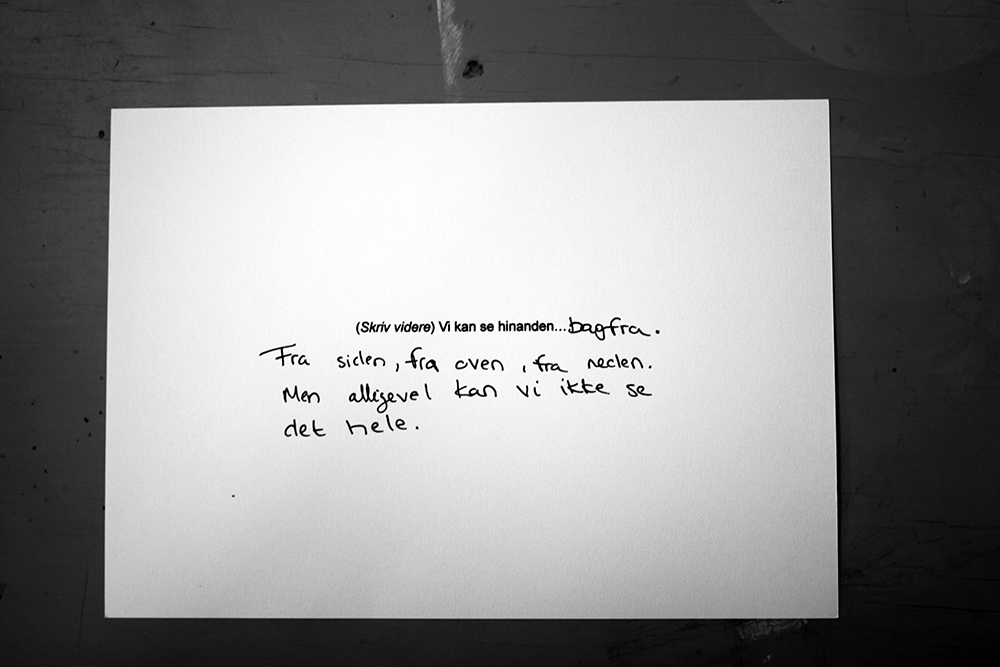 (Skriv videre) Vi kan se hinanden...bagfra.
Fra siden, fra oven, fra neden.
Men alligevel kan vi ikke se
det hele.